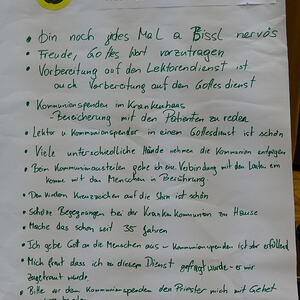 • Bin noch jedes Mal a Bissl nervös
• Freude, Gottes Wort vorzutragen
• Vorbereitung auf den Lektorendienst ist
auch Vorbereitung auf den Gottesdienst
• Kommunionspenden im Krankenhaus
- Bereicherung mit den Patienten zu reden
• Lektor u Kommunionspender in einem Gottesdienst ist schön
• Viele unterschiedliche Hände nehmen die Kommunion entgegen
• Beim Kommunionausteilen gehe ich eine Verbindung mit den Leuten ein
komme mit den Menschen in Berührung
• Den Kindern Kreuzzeichen auf die Stirn ist schön
• Schöne Begegnungen bei der Krankenkommunion zu Hause
• Mache das schon seit 35 Jahren
• Ich gebe Gott an die Menschen aus - Kommunionspenden ist der erfüllend
• Mich freut dass ich zu diesem Dienst gefragt wurde - es mir
zugetraut wurde
• Bitte vor dem Kommunionspenden den Priester mich mit Gebet